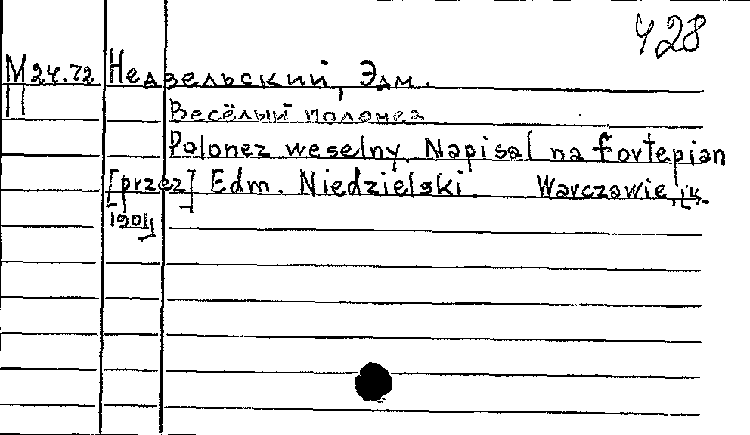 428
М 24.72 Недзельский, Эдм.
П Весёлый полонез
Polonez weselny. Napisal na fortepian
[przez] Edm. Niedzielski. Warczawie,